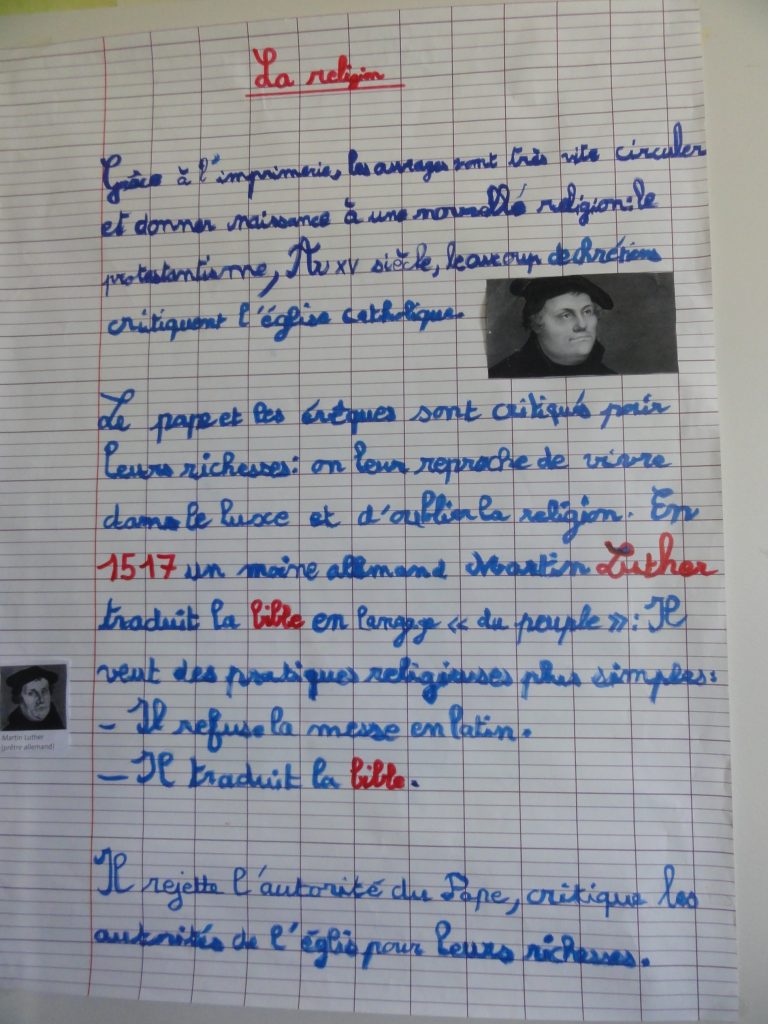 La religion
Grâce à l'imprimerie, les ouvrages vont très vite circuler
et donner naissance à une nouvelle religion: le
protestantisme, Au XV siècle, beaucoup de chrétiens
critiquent l'église catholique.
Le pape et les évêques sont critiqués pour
leurs richesses: on leur reproche de vivre
dans le luxe et d'oublier la religion. En
1517 un moine allemand Martin Luther
traduit la bible en langage « du peuple »: Il
veut des pratiques religieuses plus simples:
- Il refuse la messe en latin.
- Il traduit la bible.
Martin Luther
(prêtre allemand)
Il rejette l'autorité du Pape, critique les
autorités de l'églis pour leurs richesses.